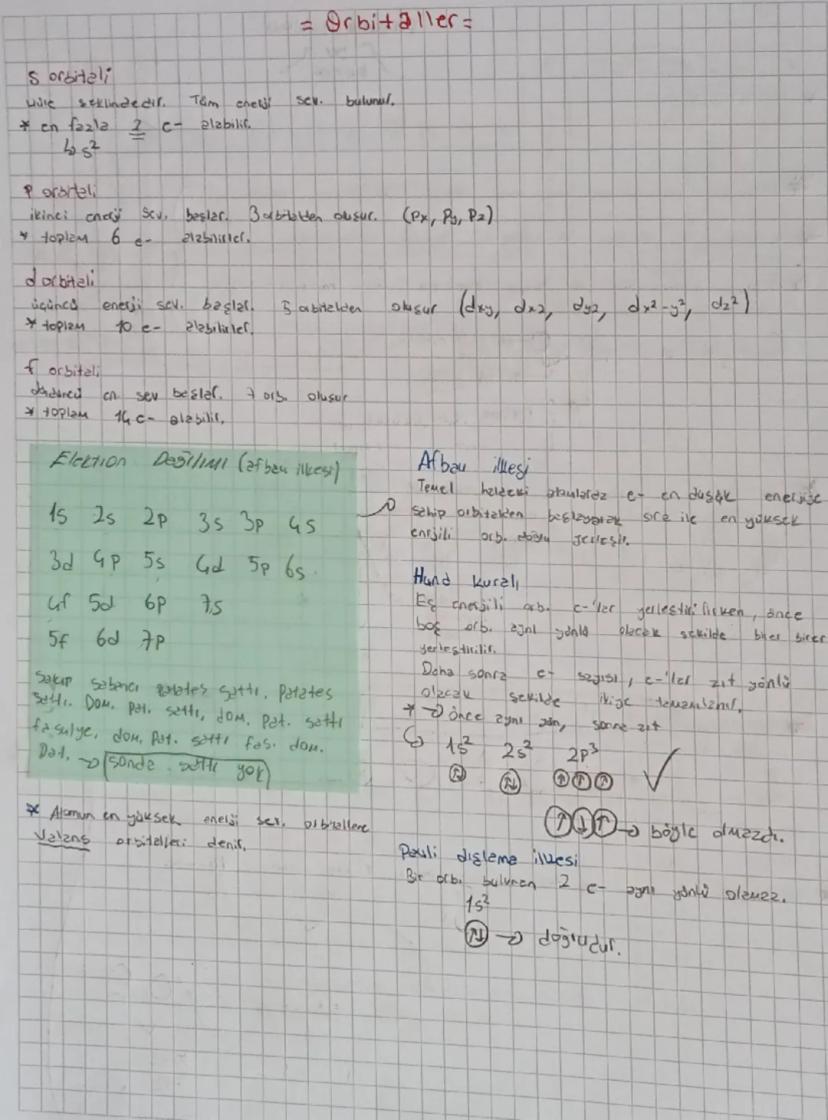 = Orbitaller =
s orbitali
küre şeklindedir. Tüm enerji sev. bulunur.
* en fazla 2 e- alabilir.
↳ s²
p orbitali
ikinci enerji sev. başlar. 3 orbitalden oluşur. (Px, Py, Pz)
* toplam 6 e- alabilirler.
d orbitali
üçüncü enerji sev. başlar. 5 orbitalden oluşur (dxy, dxz, dyz, dx²-y², dz²)
* toplam 10 e- alabilirler.
f orbitali
dördüncü en. sev başlar. 7 orb. oluşur
* toplam 14 e- alabilir.
Elektron Dağılımı (afbau ilkesi)
1s 2s 2p 3s 3p 4s
3d 4p 5s 4d 5p 6s
4f 5d 6p 7s
5f 6d 7p
Sakıp Sabancı patates sattı, Patates
sattı. Dom. pat. sattı, dom. Pat. sattı
fasulye, dom. pat. sattı fas. dom.
Pat. → sonda sattı yok
* Atomun en yüksek enerji sev. orbitallere
valans orbitalleri denir.
Afbau ilkesi
Temel haldeki atomlarda e- en düşük enerjiye
sahip orbitalden başlayarak sıra ile en yüksek
enerjili orb. doğru yerleşir.
Hund kuralı
Eş enerjili orb. e-'ler yerleştirilirken, önce
boş orb. aynı yönlü olacak şekilde birer birer
yerleştirilir.
Daha sonra e- sayısı, e-'ler zıt yönlü
olacak şekilde ikiye tamamlanır.
* → önce aynı yön, sonra zıt
↳ 1s² 2s² 2p³
↑↓ ↑↓ ↑ ↑ ↑ ✓
↑ ↓ ↑ → böyle olmazdı.
Pauli dışlama ilkesi
Bir orb. bulunan 2 e- aynı yönlü olamaz.
1s²
↑↓ → doğrudur.